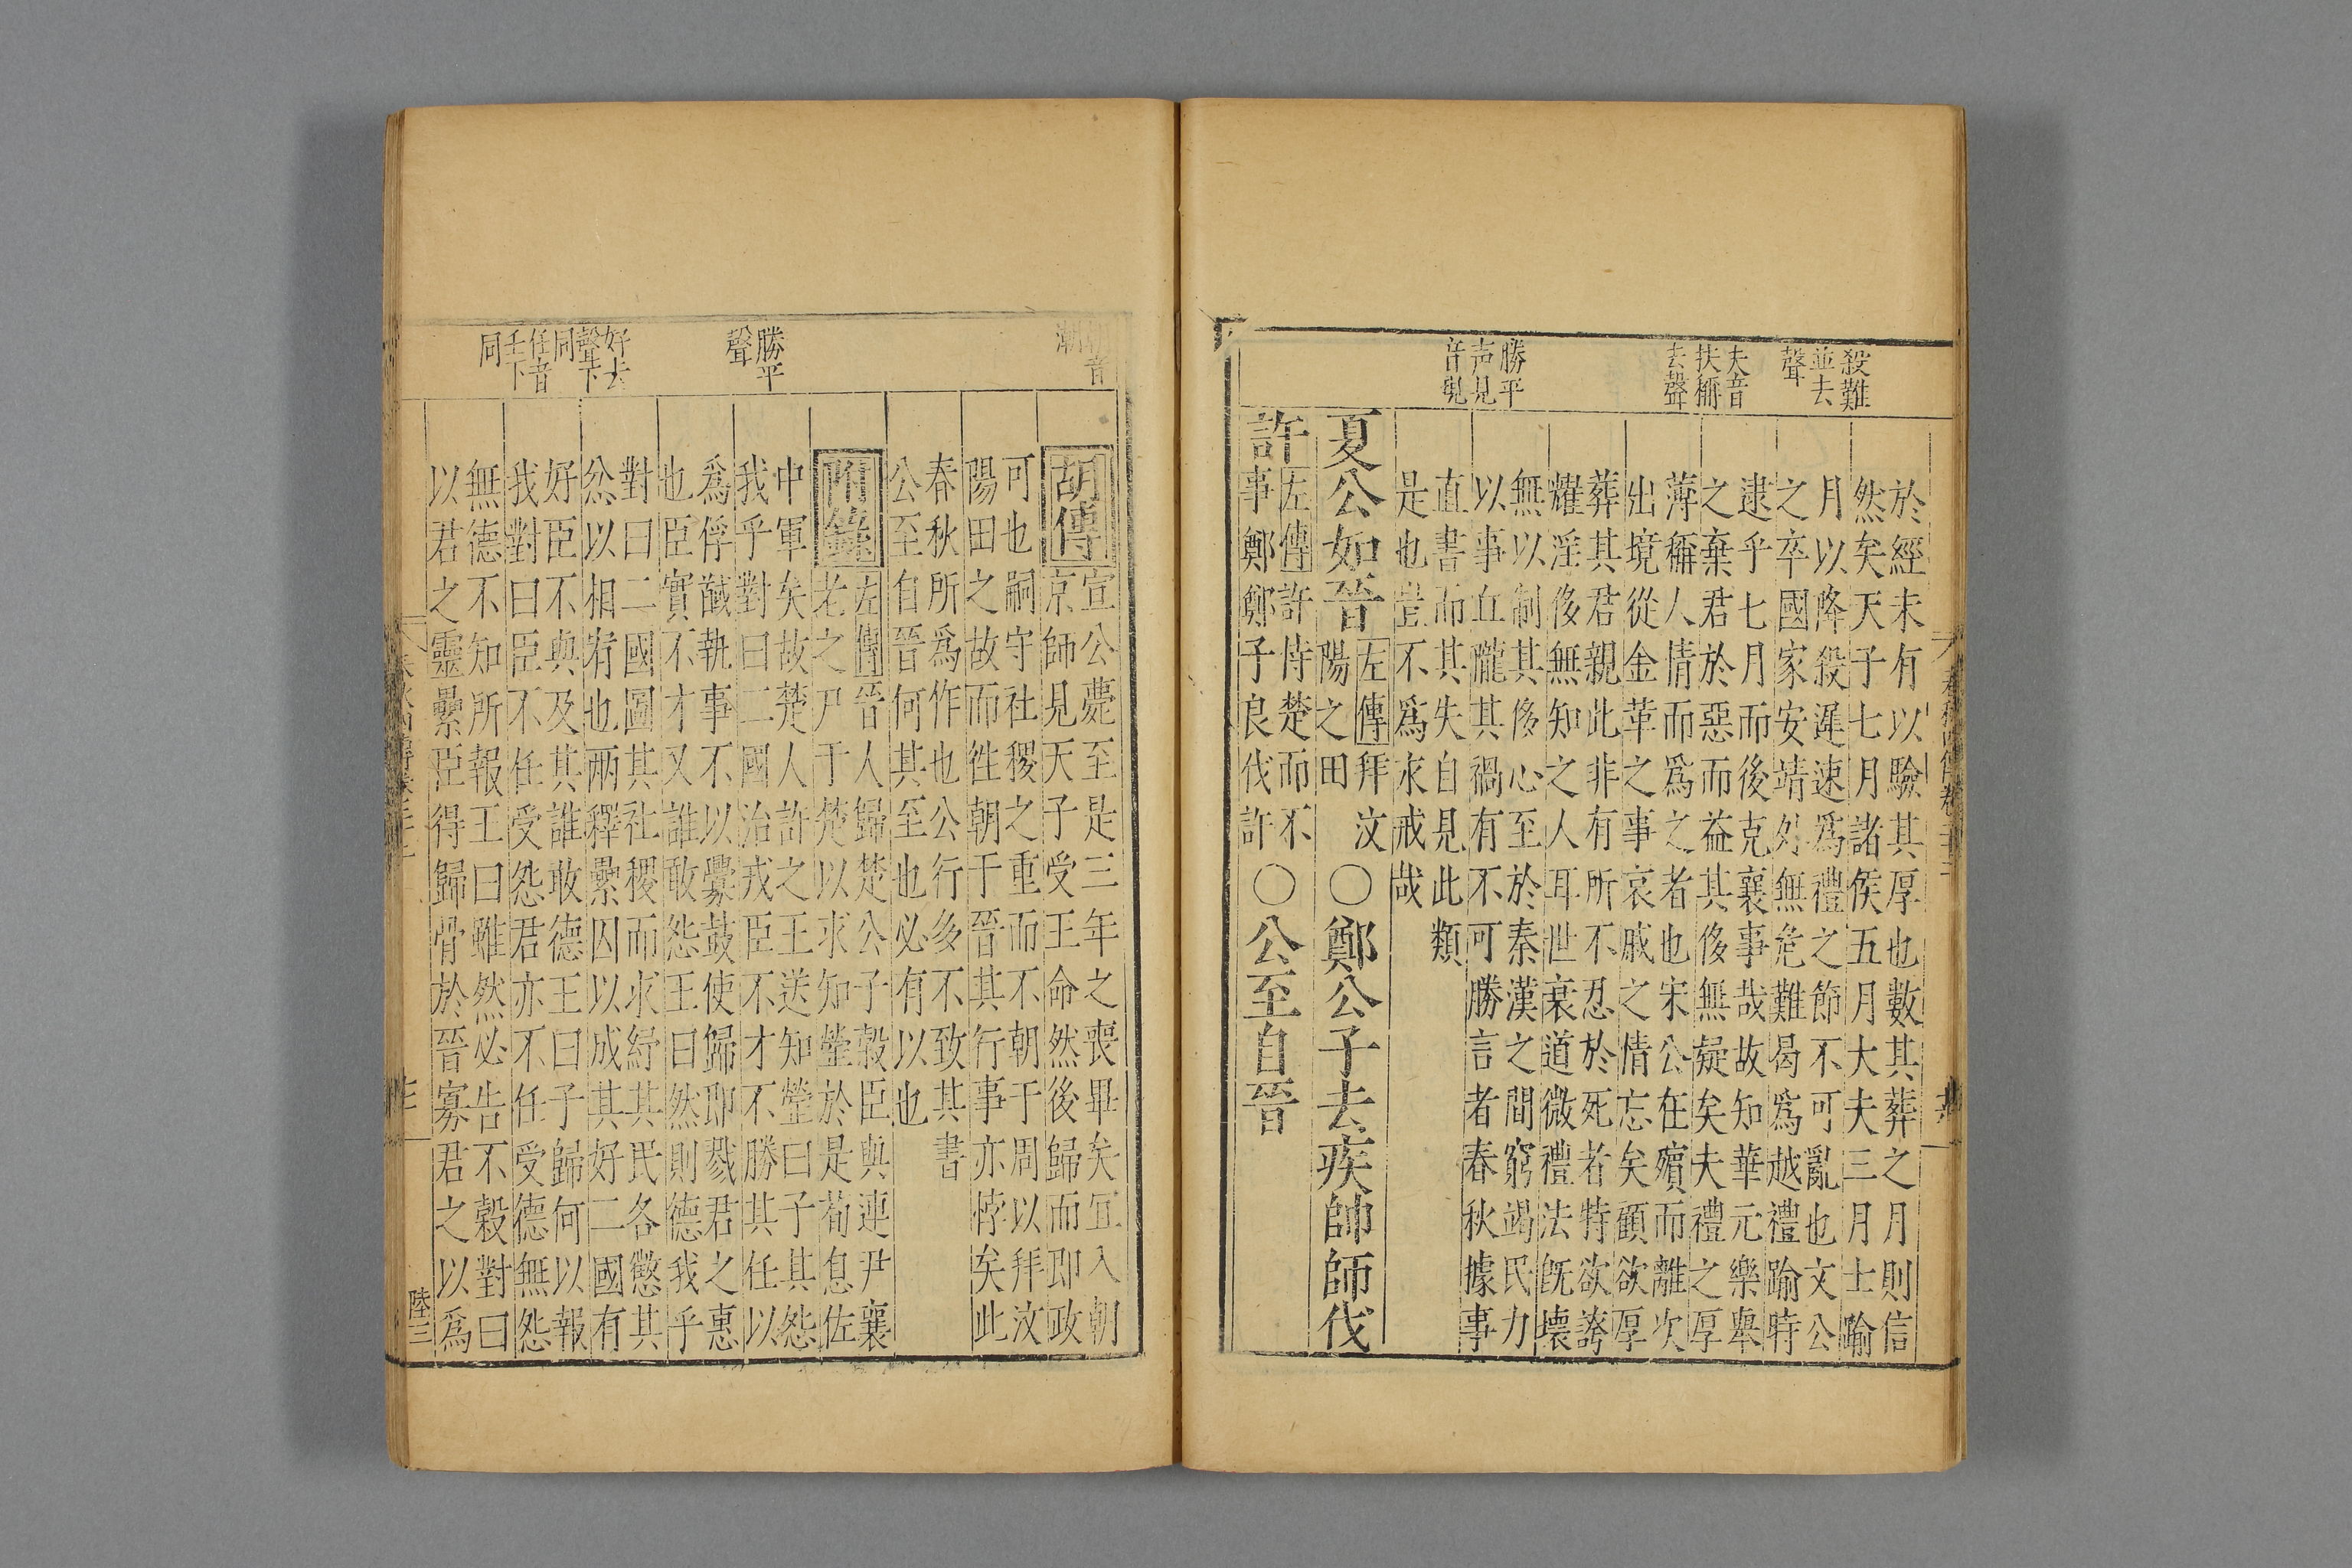 殺難
並去
聲
夫音
扶稱
去聲
勝平
声見
音現
於經未有以驗其厚也數其葬之月則信
然矣天子七月諸侯五月大夫三月士踰
月以降殺遲速爲禮之節不可亂也文公
之卒國家安靖外無危難曷爲越禮踰時
逮乎七月而後克襄事哉故知華元樂舉
之棄君於惡而益其侈無疑矣夫禮之厚
薄稱人情而爲之者也宋公在殯而離次
出境從金革之事哀戚之情忘矣顧欲厚
葬其君親此非有所不忍於死者特欲誇
耀淫侈無知之人耳世衰道微禮法旣壞
無以制其侈心至於秦漢之間窮竭民力
以事丘隴其禍有不可勝言者春秋據事
直書而其失自見此類
是也豈不爲永戒哉
夏公如晉
左傳拜汶
陽之田
○鄭公子去疾帥師伐
許
左傳許恃楚而不
事鄭鄭子良伐許
○公至自晉
音
潮
勝平
聲
好去
聲下
同
任音
壬下
同
胡傳宣公薨至是三年之喪畢矣宜入朝
京師見天子受王命然後歸而即政
可也嗣守社稷之重而不朝于周以拜汶
陽田之故而徃朝于晉其行事亦悖矣此
春秋所爲作也公行多不致其書
公至自晉何其至也必有以也
附錄左傳晉人歸楚公子穀臣與連尹襄
老之尸于楚以求知罃於是荀息佐
中軍矣故楚人許之王送知罃曰子其怨
我乎對曰二國治戎臣不才不勝其任以
爲俘馘執事不以釁鼓使歸即戮君之惠
也臣實不才又誰敢怨王曰然則德我乎
對曰二國圖其社稷而求紓其民各懲其
忿以相宥也兩釋纍囚以成其好二國有
好臣不與及其誰敢德王曰子歸何以報
我對曰臣不任受怨君亦不任受德無怨
無德不知所報王曰雖然必告不穀對曰
以君之靈纍臣得歸骨於晉寡君之以爲
陸三